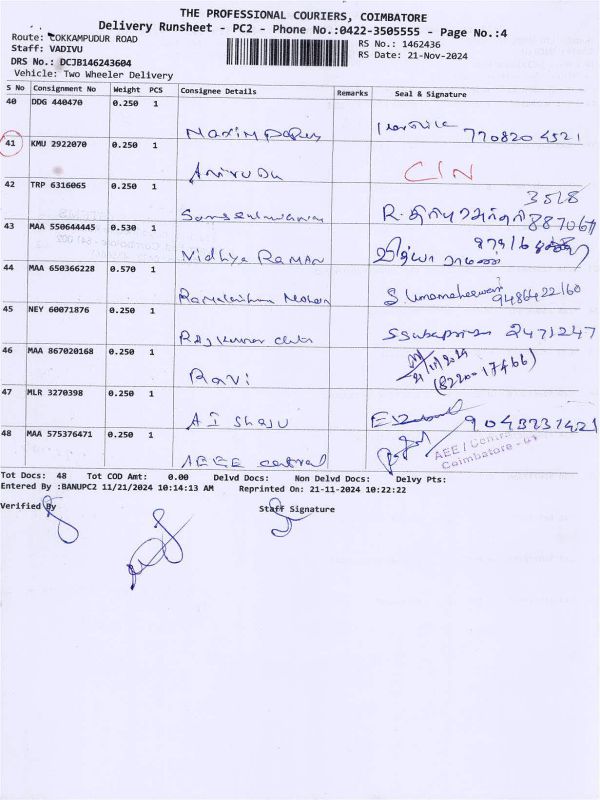 THE PROFESSIONAL COURIERS, COIMBATORE
Delivery Runsheet - PC2 - Phone No.:0422-3505555 - Page No.:4
Route: COKKAMPUDUR ROAD
RS No.: 1462436
Staff: VADIVU
RS Date: 21-Nov-2024
DRS No.: DCJB146243604
Vehicle: Two Wheeler Delivery
S No Consignment No Weight PCS Consignee Details Remarks Seal & Signature
40 DDG 440470 0.250 1
770820 4521
41 KMU 2922070 0.250 1
Anirudh CIN
42 TRP 6316065 0.250 1
3518
R.
43 MAA 550644445 0.530 1
Vidhya RAMAN வித்யா ராமன்
44 MAA 650366228 0.570 1
Ramakrishna Mohan S Umamaheswari 9486422160
45 NEY 60071876 0.250 1
Rajkumar 2471247
46 MAA 867020168 0.250 1
21/11/2024
Ravi (8220-17466)
47 MLR 3270398 0.250 1
A I Shaju 9043231421
48 MAA 575376471 0.250 1
AEE / Central
Coimbatore - 641
AEEE central
Tot Docs: 48 Tot COD Amt: 0.00 Delvd Docs: Non Delvd Docs: Delvy Pts:
Entered By :BANUPC2 11/21/2024 10:14:13 AM Reprinted On: 21-11-2024 10:22:22
Verified By Staff Signature